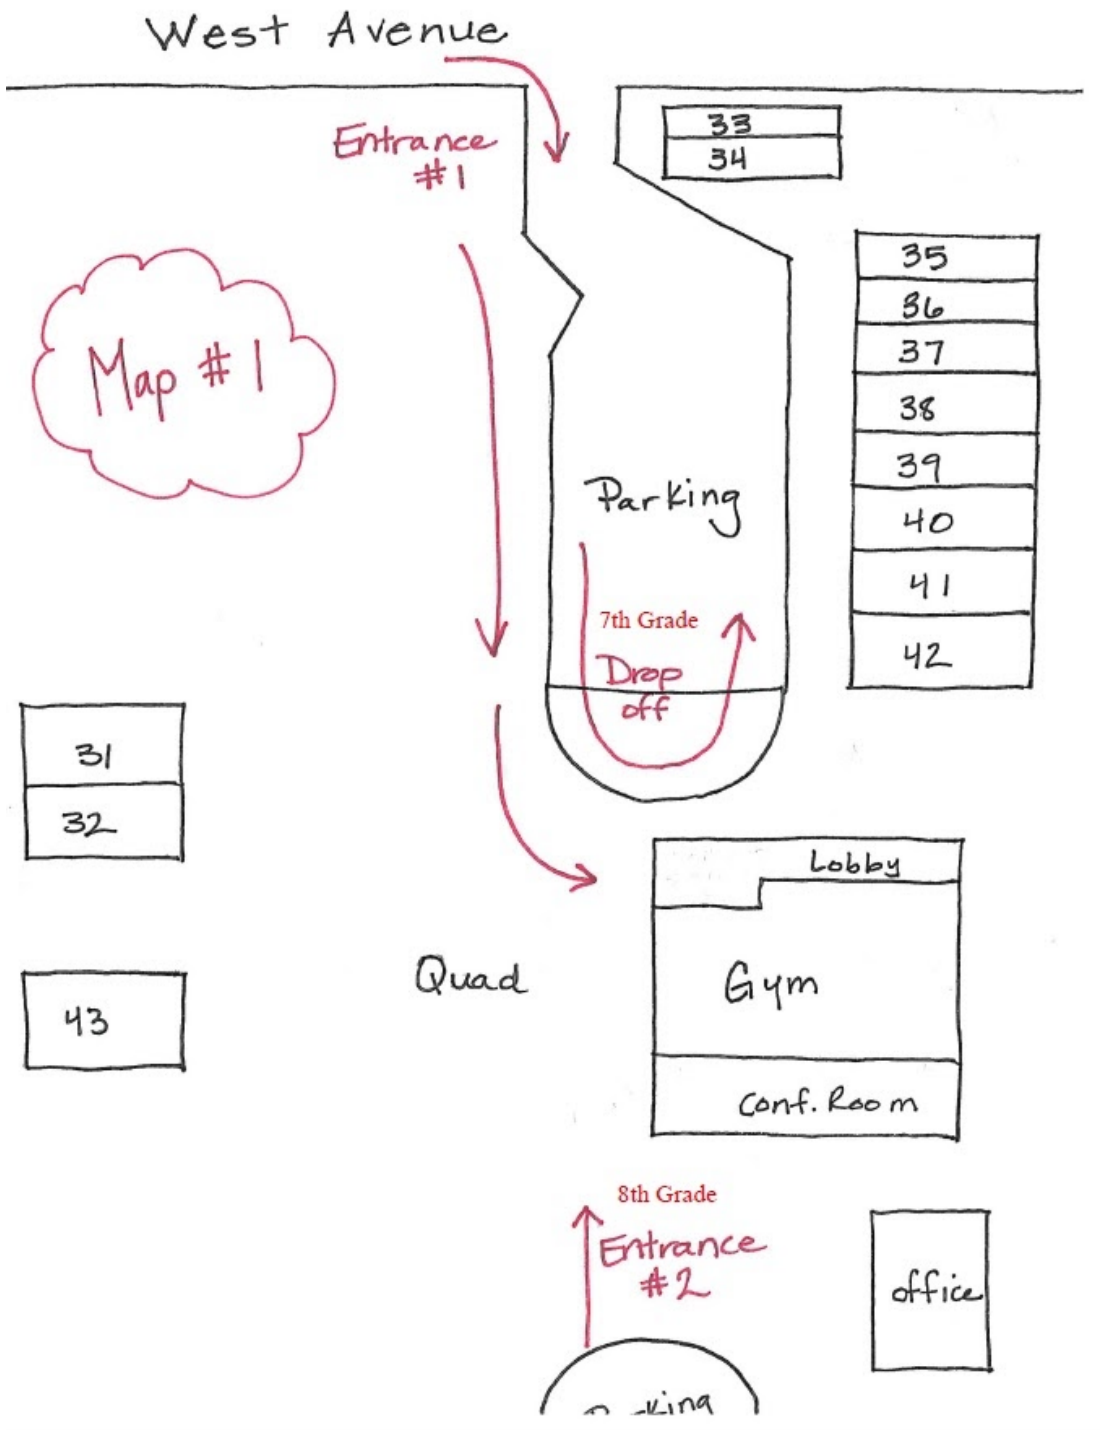 West Avenue
Entrance
#1
33
34
35
36
37
38
39
40
41
42
Map #1
Parking
7th Grade
Drop
off
31
32
Lobby
Gym
Conf. Room
Quad
43
8th Grade
Entrance
#2
office
Parking